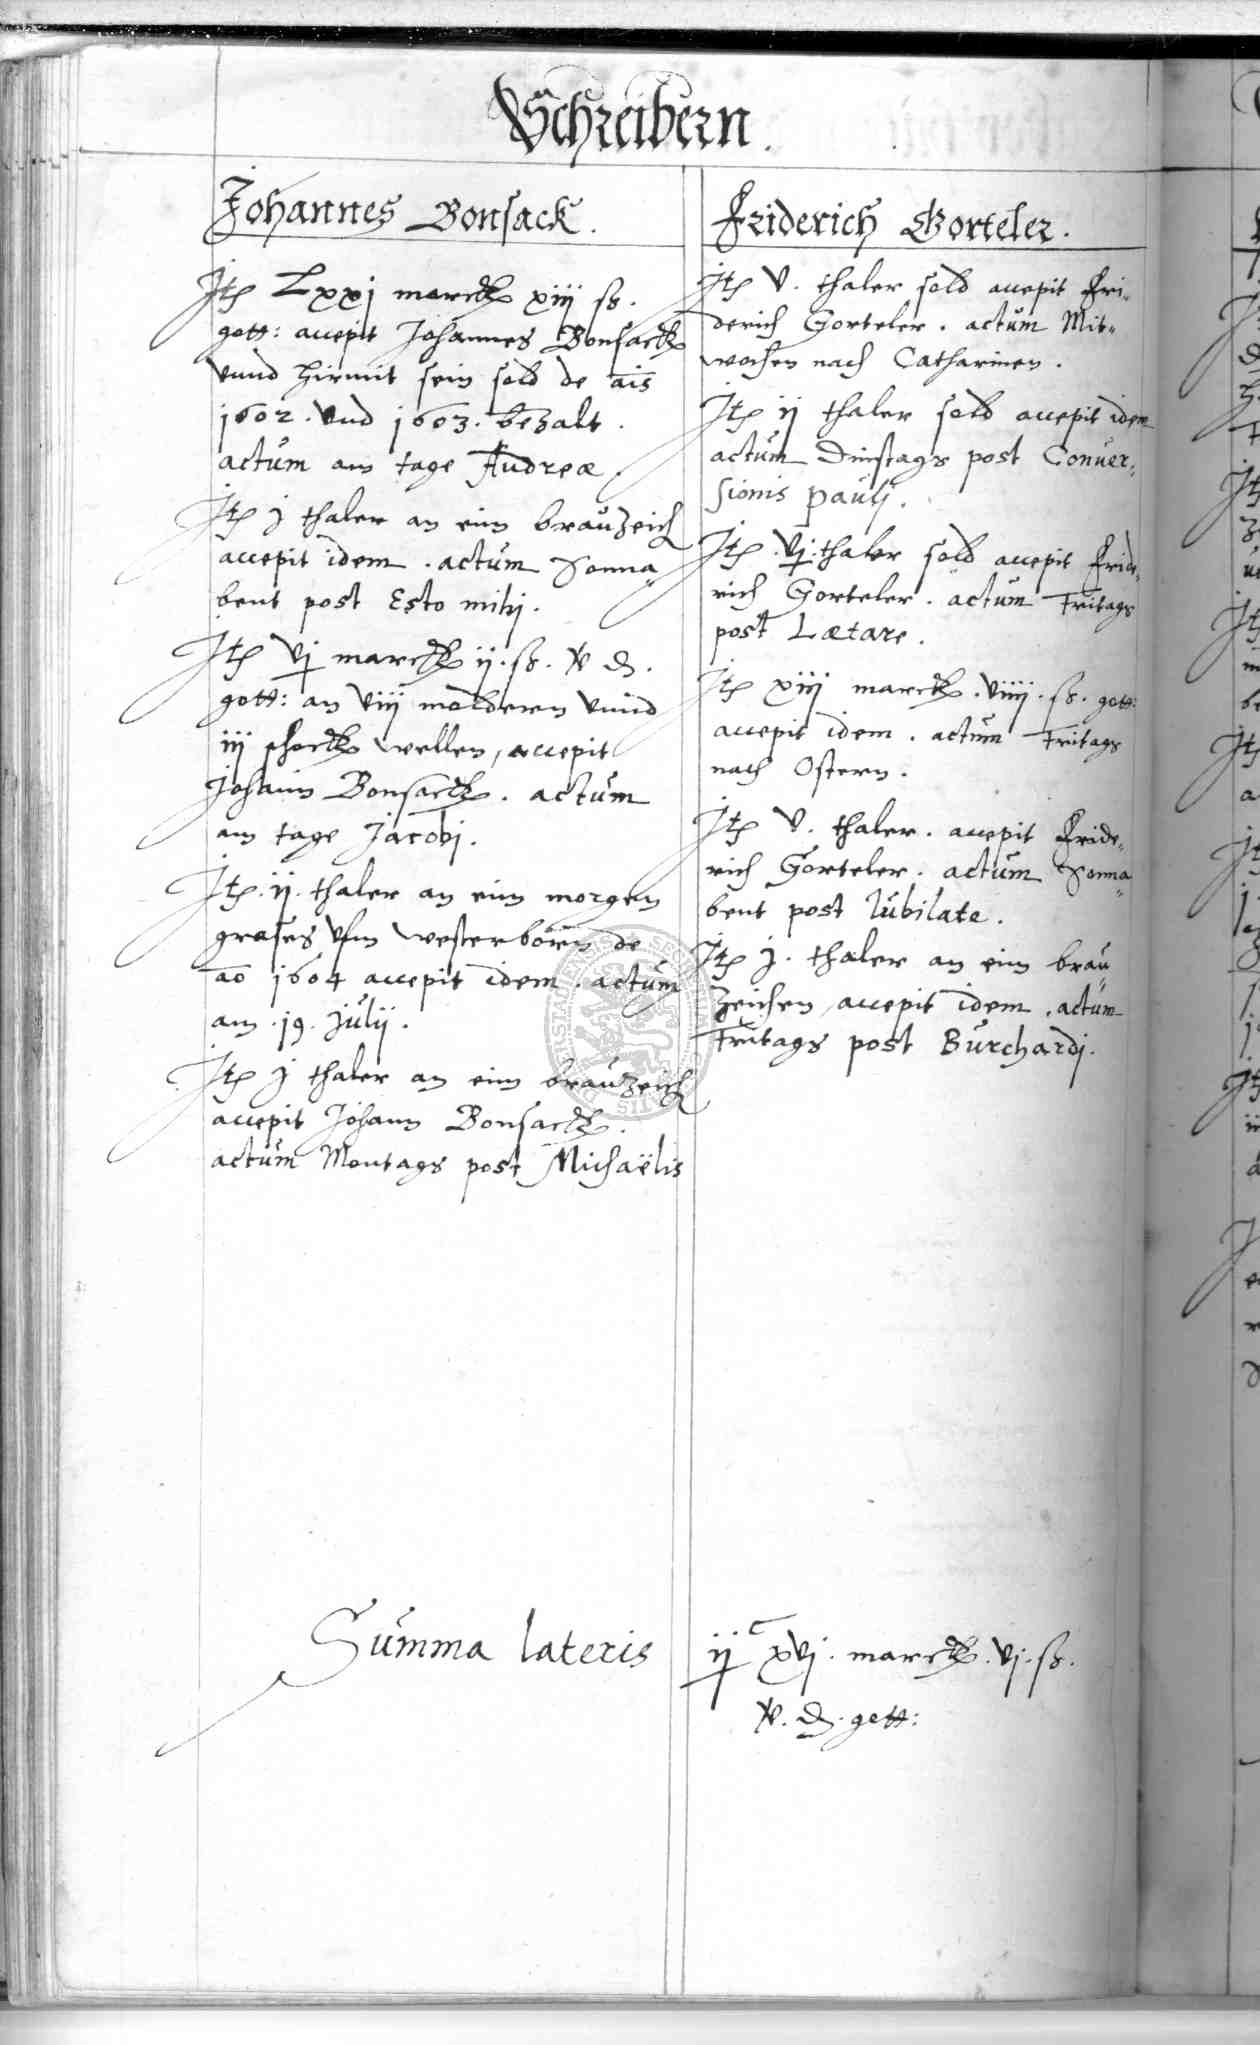 Schreibern.
Johannes Bonsack.
Jt Lxxj marck xiij ß.
gott: accepit Johannes Bonsack
vnnd hirmit sein sold de ais
1602. vnd 1603. bezalt.
actum am tage Andreæ.
Jt j thaler an eim brauzeich
accepit idem. actum Sonna„
bent post Esto mihj.
Jt vj marck ij. ß. x ₰.
gott: an viij moldern vnnd
iij schock wellen, accepit
Johann Bonsack. actum
am tage Jacobj.
Jt. ij. thaler an eim morgen
grases vfm westerborn de
ao 1604 accepit idem. actum
am. 19. Julij.
Jt j thaler an eim brauzeich
accepit Johann Bonsack.
actum Montags post Michaëlis
Friderich Gorteler.
Jt v. thaler sold accepit Fri„
derich Gorteler. actum Mit„
wochen nach Catharinen.
Jt ij thaler sold accepit idem
actum Dinstags post Conuer„
sionis Paulj.
Jt. vj. thaler sold accepit Fride„
rich Gorteler. actum Fritags
post Lætare.
Jt xiij marck. viiij. ß. gott:
accepit idem. actum Fritags
nach Ostern.
Jt v. thaler. accepit Fride„
rich Gorteler. actum Sonna„
bent post Iubilate.
Jt j. thaler an eim brau„
zeichen, accepit idem. actum
Fritags post Burchardj.
Summa lateris ij c xvj. marck. vj. ß.
x. ₰. gott: